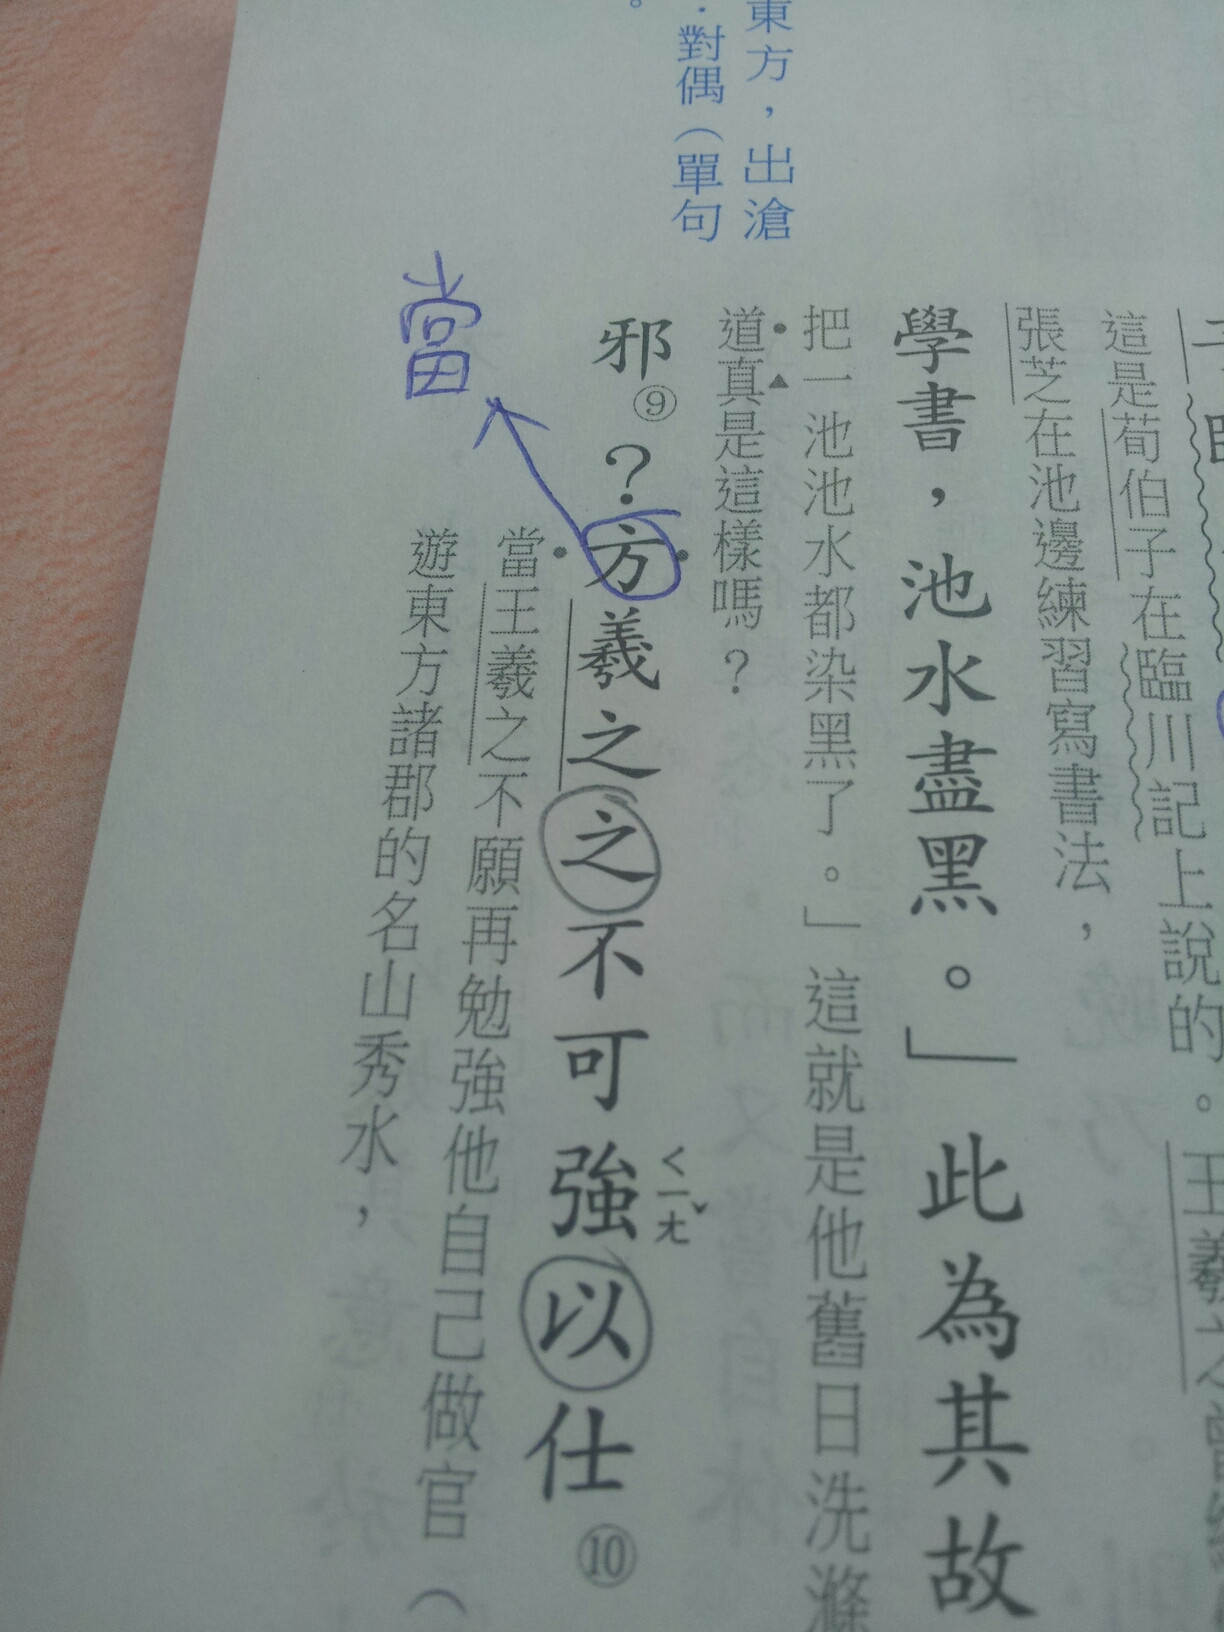 東方，出滄
：對偶（單句
。
這是荀伯子在臨川記上說的。王羲之曾經
張芝在池邊練習寫書法，
學書，池水盡黑。」此為其故
把一池池水都染黑了。」這就是他舊日洗滌
道真是這樣嗎？
邪⑨？方羲之之不可強以仕⑩
ㄑㄧㄤˇ
當王羲之不願再勉強他自己做官（
遊東方諸郡的名山秀水，
當